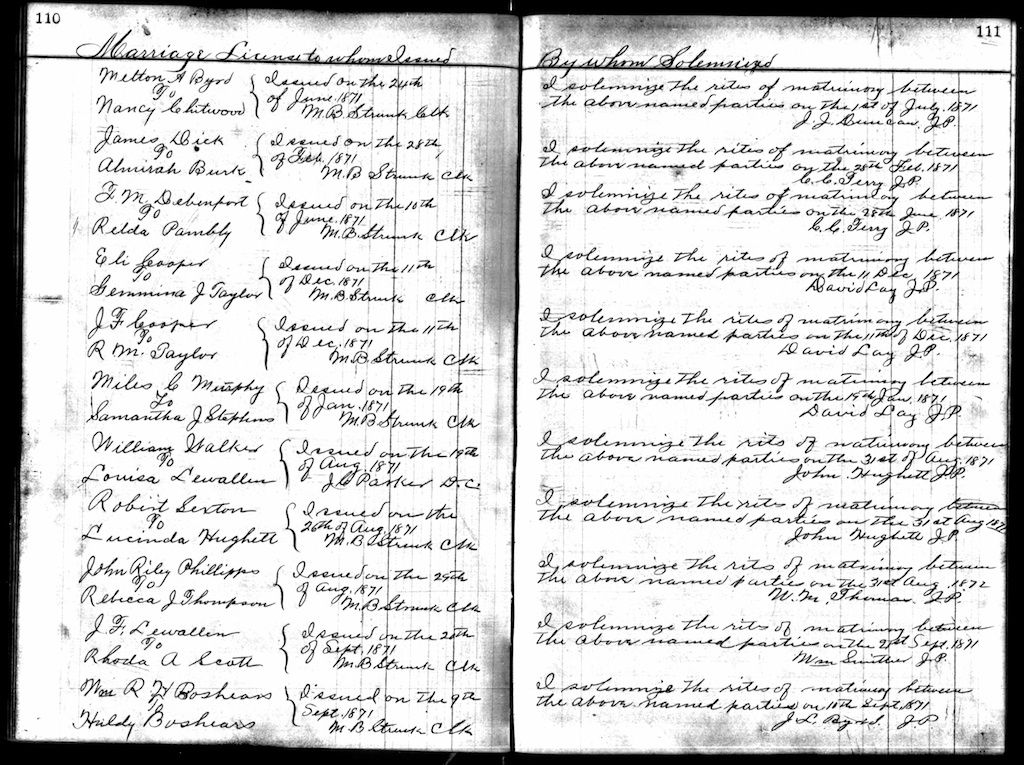 110
Marriage License to whom Issued
Melton A Byrd
To
Nancy Chitwood
Issued on the 24th
of June 1871
M.B. Strunk Clk
James Dick
To
Almirah Burk
Issued on the 28th
of Feb. 1871
M B Strunk Clk
F M Debenport
To
Relda Pambly
Issued on the 10th
of June 1871
M.B. Strunk Clk
Eli Cooper
To
Gemmina J Taylor
Issued on the 11th
of Dec. 1871
M.B. Strunk Clk
J F Cooper
To
R M. Taylor
Issued on the 11th
of Dec. 1871
M.B. Strunk Clk
Miles C Murphy
To
Samantha J Stephens
Issued on the 19th
of Jan. 1871
M.B. Strunk Clk
William Walker
To
Louisa Lewallen
Issued on the 19th
of Aug. 1871
J C Parker D.C.
Robert Sexton
To
Lucinda Hughett
Issued on the
26th of Aug 1871
M.B. Strunk Clk
John Riley Phillipps
To
Rebecca J Thompson
Issued on the 29th
of Aug. 1871
M.B. Strunk Clk
J. F. Lewallen
To
Rhoda A Scott
Issued on the 20th
of Sept. 1871
M.B. Strunk Clk
Wm R H Boshears
Huldy Boshears
Issued on the 9th
Sept. 1871
M B Strunk Clk
111
By whom Solemnized
I solemnize the rites of matrimony between
the above named parties on the 1st of July 1871
J. J. Duncan, JP.
I solemnize the rites of matrimony between
the above named parties on the 28th Feb. 1871
C. C. Terry J.P.
I solemnize the rites of matrimony between
the above named parties on the 28th June 1871
C. C. Terry J.P.
I solemnize the rites of matrimony between
the above named parties on the 11 Dec 1871
David Lay J.P.
I solemnize the rites of matrimony between
the above named parties on the 11th of Dec. 1871
David Lay J.P.
I solemnize the rites of matimony between
the above named parties on the 19th Jan. 1871
David Lay J.P.
I solemnize the rits of matrimony between
the above named parties on the 31st of Aug. 1871
John Hughett J.P.
I solemnize the rits of matrimony between
the above named parties on the 31st Aug 187
John Hughett J.P.
I solemnize the rites of matrimony between
the above named parties on the 31st Aug. 1872
W. M. Thomas. J.P.
I solemnize the rites of matrimony between
the above named parties on the 21st Sept. 1871
Wm Smither J.P.
I solemnize the rites of matimony between
the above named parties on 10th Sept. 1871
J. L. Byrd. J P